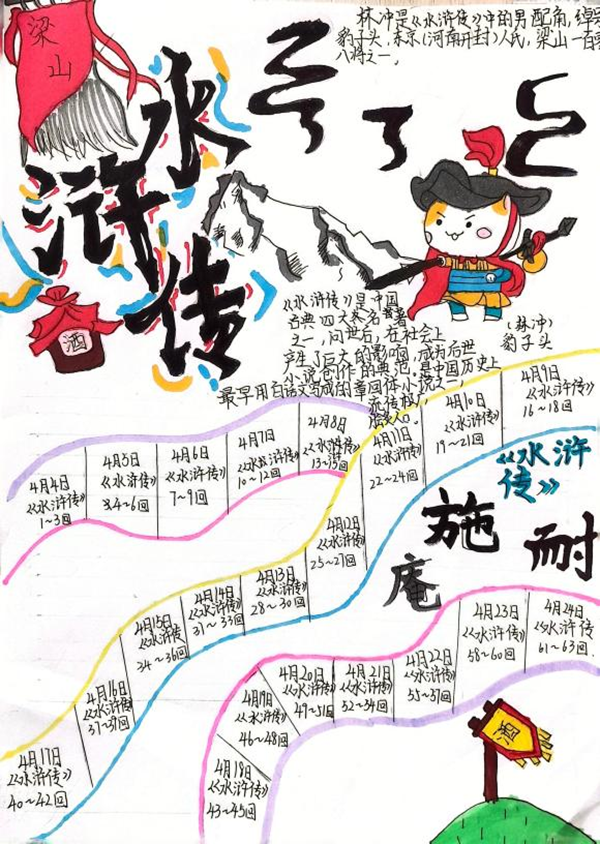 梁山
林冲是《水浒传》中的男配角,绰号
豹子头,东京(河南开封)人氏,梁山一百零
八将之一。
水浒传
酒
《水浒传》是中国
古典四大名著
之一,问世后,在社会上
产生了巨大的影响,成为后世
小说创作的典范。是中国历史上
最早用白话文写成的章回体小说之一,
流传极广
(林冲)
豹子头
4月4日
《水浒传》
1~3回
4月5日
《水浒传》
4~6回
4月6日
《水浒传》
7~9回
4月7日
《水浒传》
10~12回
4月8日
《水浒传》
13~15回
4月9日
《水浒传》
16~18回
4月10日
《水浒传》
19~21回
4月11日
《水浒传》
22~24回
4月12日
《水浒传》
25~27回
4月13日
《水浒传》
28~30回
4月14日
《水浒传》
31~33回
4月15日
《水浒传
34~36回
4月16日
《水浒传》
37~39回
4月17日
《水浒传》
40~42回
4月18日
《水浒传》
43~45回
4月19日
《水浒传》
46~48回
4月20日
《水浒传》
49~51回
4月21日
《水浒传》
52~54回
4月22日
《水浒传》
55~57回
4月23日
《水浒传》
58~60回
4月24日
《水浒传
61~63回
《水浒
传》
施耐
庵
酒